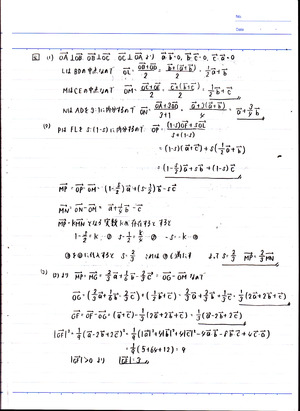 No.
Date
(1) OA⊥OB, OB⊥OC, OC⊥OA より a·b=0, b·c=0, c·a=0
LはBDの中点なので OL = (OB+OD)/2 = (b+(a+b))/2 = 1/2 a + b
MはCEの中点なので OM = (OC+OE)/2 = (c+(b+c))/2 = 1/2 b + c
NはADを3:1に内分するので ON = (OA+3OD)/(3+1) = (a+3(a+b))/4 = a + 3/4 b
(2) PはFLをs:(1-s)に内分するので OP = ((1-s)OF+sOL)/(s+(1-s))
= (1-s)(a+c) + s(1/2 a + b)
= (1-s/2)a + sb + (1-s)c
MP = OP-OM = (1-s/2)a + (s-1/2)b - sc
MN = ON-OM = a + 1/4 b - c
MP = kMN となる実数kが存在すると
(3) (2)より MP = MG = 2/3 a + 1/6 b - 2/3 c = OG - OM なので
OG = (2/3 a + 1/6 b - 2/3 c) + (1/2 b + c) = 2/3 a + 2/3 b + 1/3 c = 1/3(2a+2b+c)
GF = OF-OG = (a+c) - 1/3(2a+2b+c) = 1/3(a-2b+2c)
|GF|² = 1/9(a-2b+2c)² = 1/9(|a|²+4|b|²+4|c|²-4a·b-8b·c+4c·a)
= 1/9(5+64+12) = 9
|GF|>0 より |GF| = 3